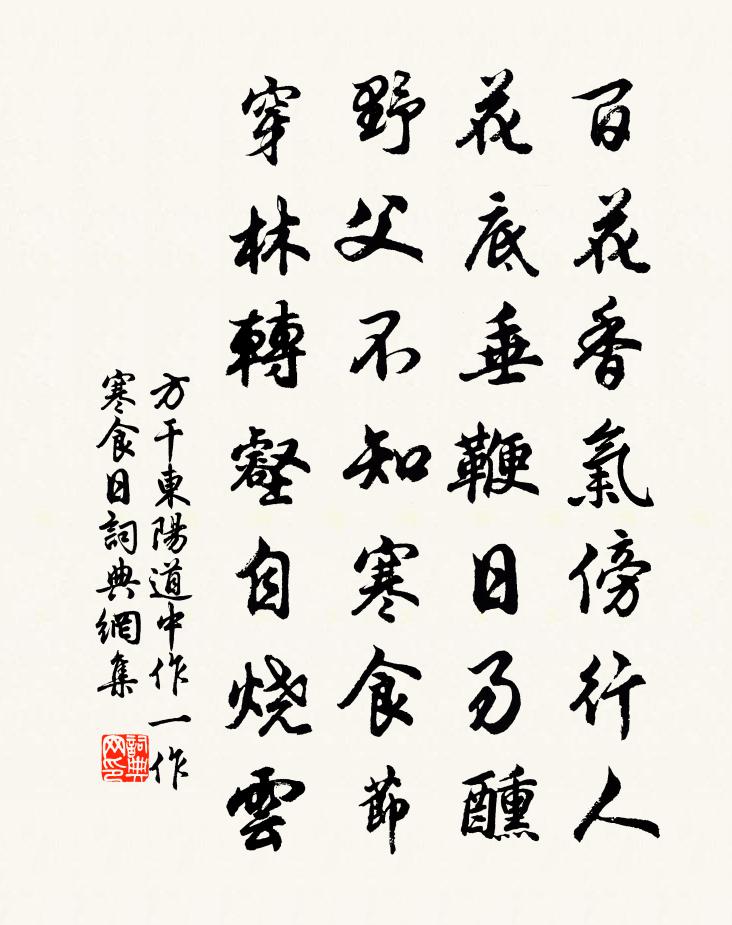 百花香氣傍行人
花底垂鞭日易醺
野父不知寒食節
穿林轉壑自燒雲
方干東陽道中作一作
寒食日詞典網集
詞典
网印